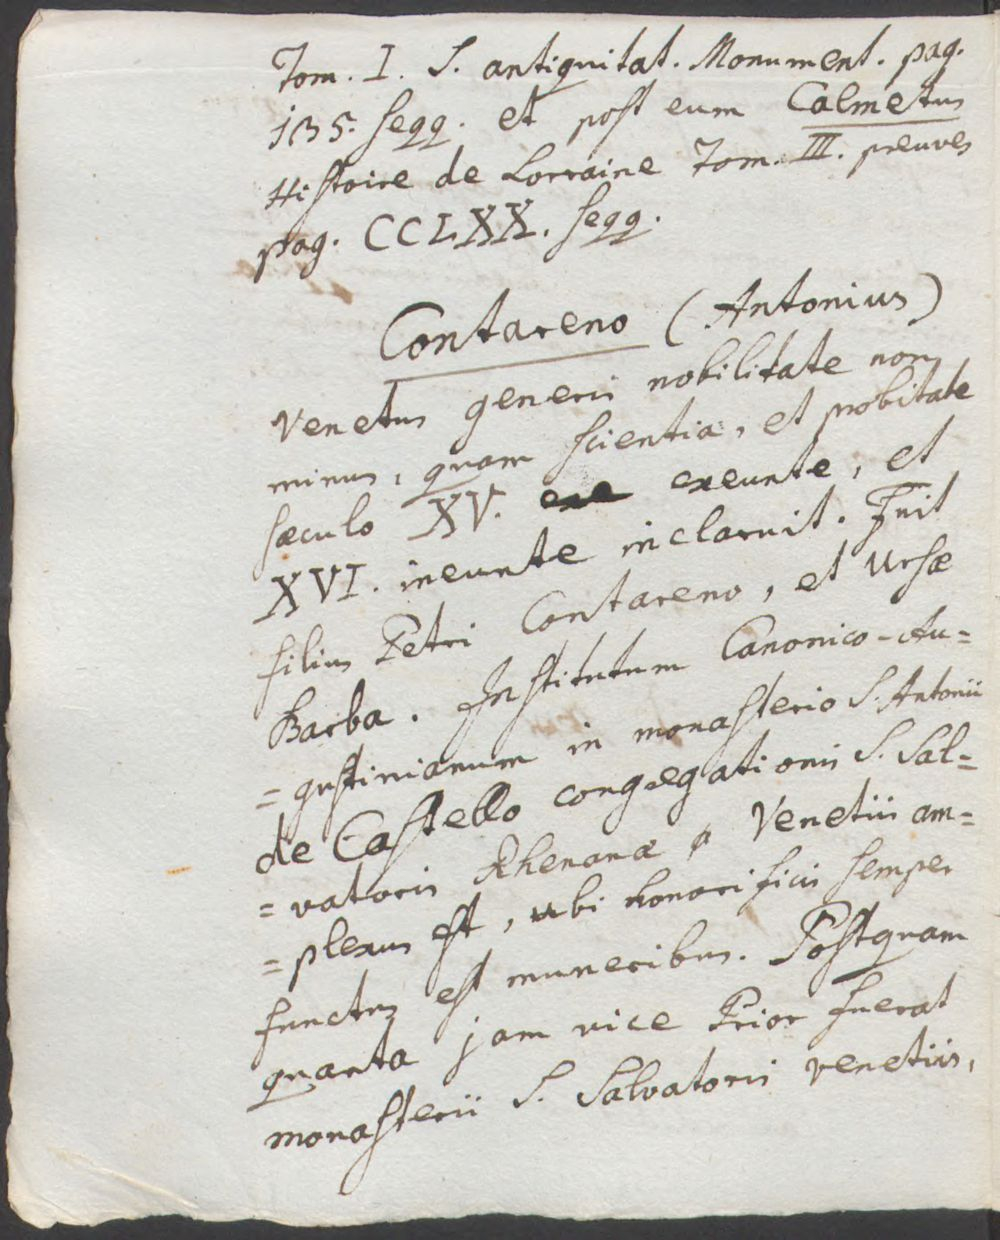 Tom. I. S. antiquitat. Monument. pag.
135. seqq. et post eum Calmetus
Histoire de Lorraine Tom. III. preuves
pag. CCLXX. seqq.
Contareno (Antonius)
Venetus generis nobilitate non
minus, quam scientia, et probitate
sæculo XV. exeunte, et
XVI. ineunte inclaruit. Fuit
filius Petri Contareno, et Ursæ
Barba. Institutum Canonico-Au=
=gustinianum in monasterio S. Antonii
de Castello congregationis S. Sal=
=vatoris Rhenanæ Venetiis am=
=plexus est, ubi honorificis semper
functus est muneribus. Postquam
quarta jam vice Prior fuerat
monasterii S. Salvatoris Venetiis,